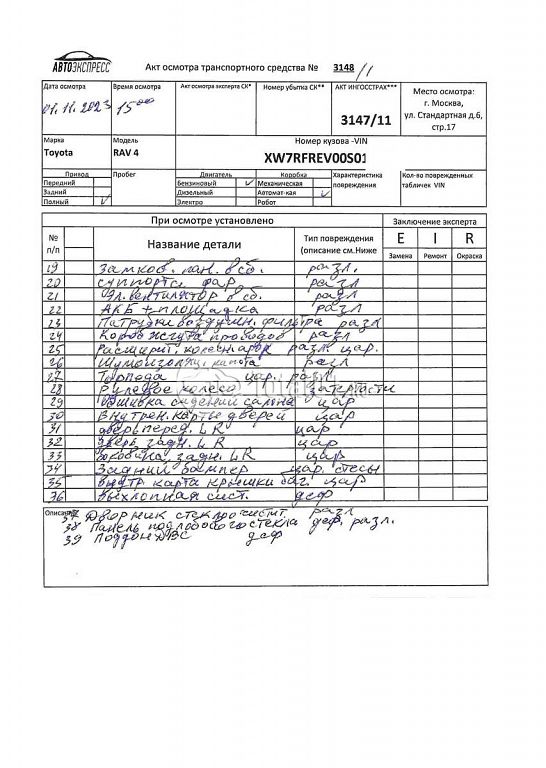 АВТОЭКСПРЕСС
Акт осмотра транспортного средства № 3148/1
Дата осмотра
01.11.2023
Время осмотра
15 00
Акт осмотра эксперта СК*
Номер убытка СК**
АКТ ИНГОССТРАХ***
3147/11
Место осмотра:
г. Москва,
ул. Стандартная д.6,
стр.17
Марка
Toyota
Модель
RAV 4
Номер кузова -VIN
XW7RFREV00S01
Привод
Передний
Задний
Полный ✓
Пробег
Двигатель
Бензиновый ✓
Дизельный
Электро
Коробка
Механическая
Автомат-кая ✓
Робот
Характеристика
повреждения
Кол-во поврежденных
табличек VIN
При осмотре установлено
Заключение эксперта
№ п/п
Название детали
Тип повреждения
(описание см.Ниже
E I R
Замена Ремонт Окраска
19 Замков. пан. в сб. разл.
20 суппорты фар разл
21 Эл.вентилятор в сб. разл
22 АКБ + площадка разл
23 Патрубки воздушн. фильтра разл
24 Короб жгута проводов разл
25 Расширит. колесн. арок разл. цар.
26 Шумоизоляц. капота разл
27 Торпода цар. разл.
28 Рулевое колесо затертости
29 Обшивка сидений салона цар
30 Внутрен. карты дверей цар
31 дверь перед. LR цар
32 дверь задн. LR цар
33 боковина задн. LR цар
34 Задний бампер цар. стесы
35 внутр карта крышки баг. цар
36 выхлопная сист. деф
Описание
37 Дворник стеклоочист. разл
38 Панель подлобового стекла деф. разл.
39 Поддон ДВС деф